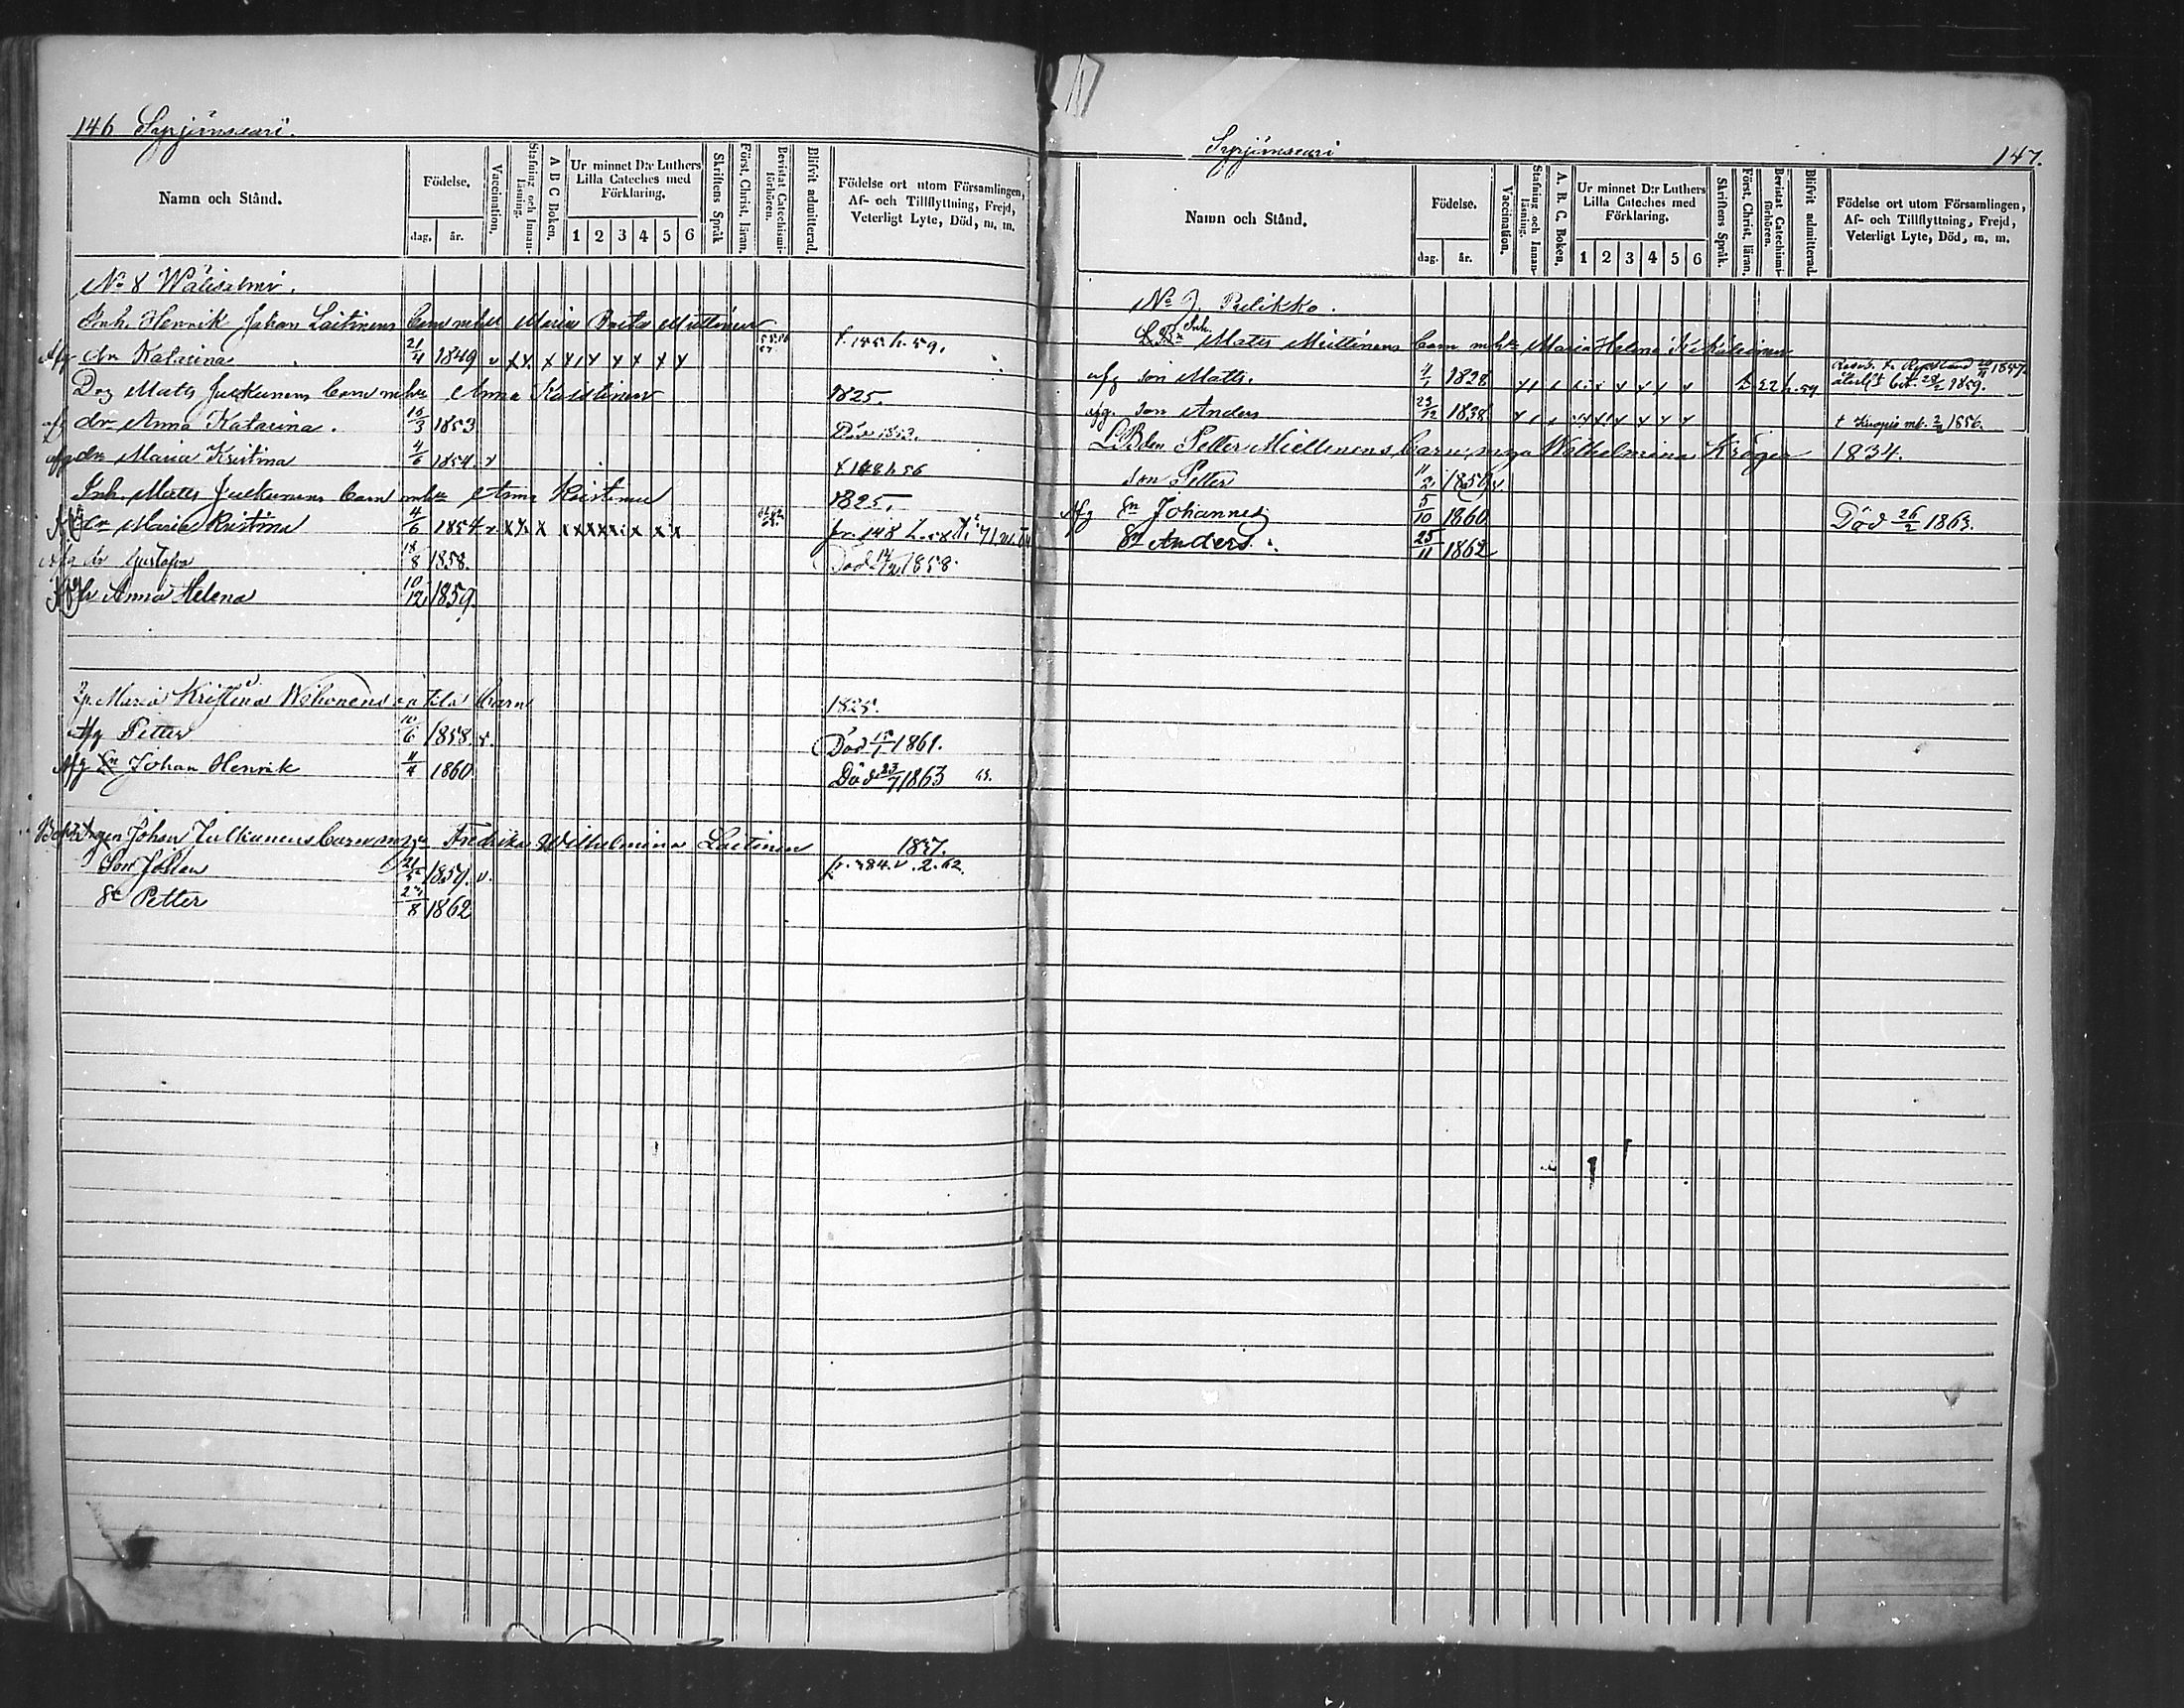 146 Syrjänsaari.
Namn och Stånd.
Födelse.
dag. år.
Vaccination.
Stafning och Innanläsning.
A B C Boken.
Ur minnet D:r Luthers Lilla Cateches med Förklaring.
1 2 3 4 5 6
Skriftens Språk
Först. Christ. läran.
Bevistat Catechismiförhören.
Blifvit admitterad.
Födelse ort utom Församlingen, Af- och Tillflyttning, Frejd, Veterligt Lyte, Död, m. m.
No 8
Inh. Henrik Johan Laitinens barn m hu Maria Brita Miettinen
Afg dr Katarina 21/11 1849 v x x x x x x x x x f. 155 h. 59.
Drg Matts Julkunens barn m hu Anna Kaistinen 1825.
afg dr Anna Katarina. 15/3 1853 Död 1853.
afg dr Maria Kristina 4/6 1854. v f. 148 h 56
Inh. Matts Julkunens barn m hu Anna Kaistinen 1825.
dr Maria Kristina 4/6 1854 v x x x x x x x x x fr. 148 h.
Afg dr Gustafva 18/8 1858. Död 1858.
dr Anna Helena 10/12 1859.
Maria Kristina oä barn 1825.
Afg Petter 10/6 1858. v. Död 15/1 1861.
Afg Sn Johan Henrik 11/4 1860 Död 23/7 1863
Johan Julkunens barn m hu Fredrika Wilhelmina Laitinen 1837.
Son Johan 21/5 1859. v. fr. 384. v. 2. 62.
Sn Petter 8 1862
Syrjänsaari 147.
Namn och Stånd.
Födelse.
dag. år.
Vaccination.
Stafning och Innanläsning.
A. B. C. Boken.
Ur minnet D:r Luthers Lilla Cateches med Förklaring.
1 2 3 4 5 6
Skriftens Språk.
Först. Christ. läran.
Bevistat Catechismiförhören.
Blifvit admitterad.
Födelse ort utom Församlingen, Af- och Tillflyttning, Frejd, Veterligt Lyte, Död, m. m.
No 9. Pulikko.
Inh. Matts Miettinens barn m hu Maria Helena
afg son Matts. 1828 1859.
afg. son Anders 23/12 1838 t Kuopio mb. 1856.
Petter Miettinens barn, m ga Wilhelmina Kröger 1834.
son Petter 11/2 1859 v.
Afg Sn Johannes 5/10 1860 Död 26/2 1863.
Sn Anders. 25/11 1862